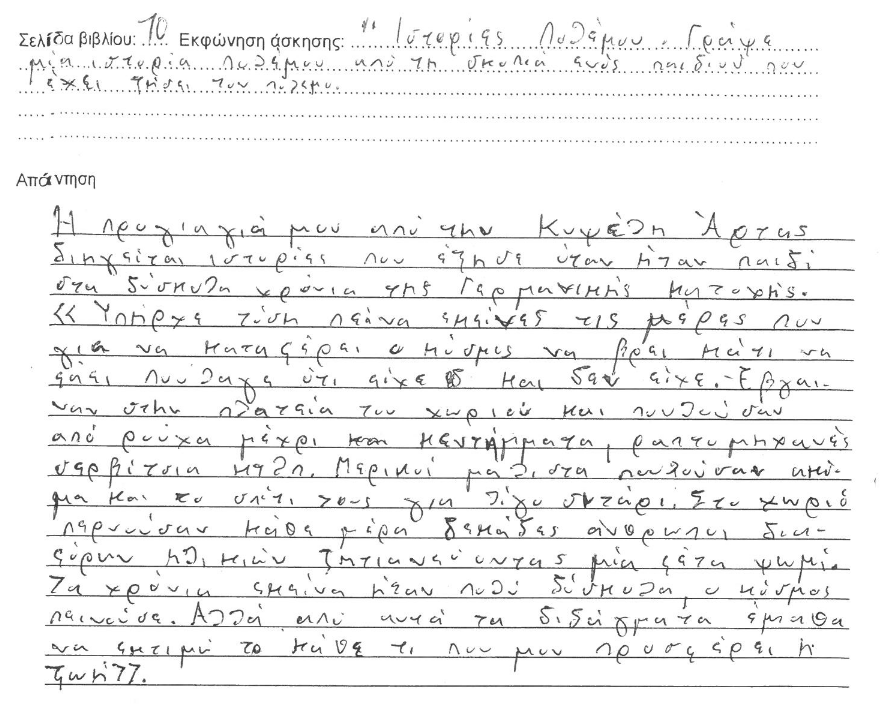 Σελίδα βιβλίου: 70 Εκφώνηση άσκησης: "Ιστορίας Πολέμου. Γράψε
μία ιστορία πολέμου από τη σκοπιά ενός παιδιού που
έχει ζήσει τον πόλεμο.
Απάντηση
Η προγιαγιά μου από την Κυψέλη Άρτας
διηγείται ιστορίες που έζησε όταν ήταν παιδί
στα δύσκολα χρόνια της Γερμανικής κατοχής.
<< Υπήρχε τόση πείνα εκείνες τις μέρες που
για να καταφέρει ο κόσμος να βρει κάτι να
φάει πουλαγε ότι είχε και δεν είχε. Έβγαι-
ναν στην πλατεία του χωριού και πουλούσαν
από ρούχα μέχρι κεντήμματα, ραπτομηχανές
σερβίτσια κτλπ. Μερικοί μαλιστα πουλούσαν ακό-
μα και το σπίτι τους για λίγο σιτάρι. Στο χωριό
περνούσαν κάθε μέρα δεκάδες άνθρωποι δια-
φόρων ηλικιών ζητιανεύοντας μία φέτα ψωμί.
Τα χρόνια εκείνα ήταν πολύ δύσκολα, ο κόσμος
πεινούσε. Αλλά από αυτά τα διδάγματα έμαθα
να εκτιμώ το κάθε τι που μου προσφέρει η
ζωή>>.